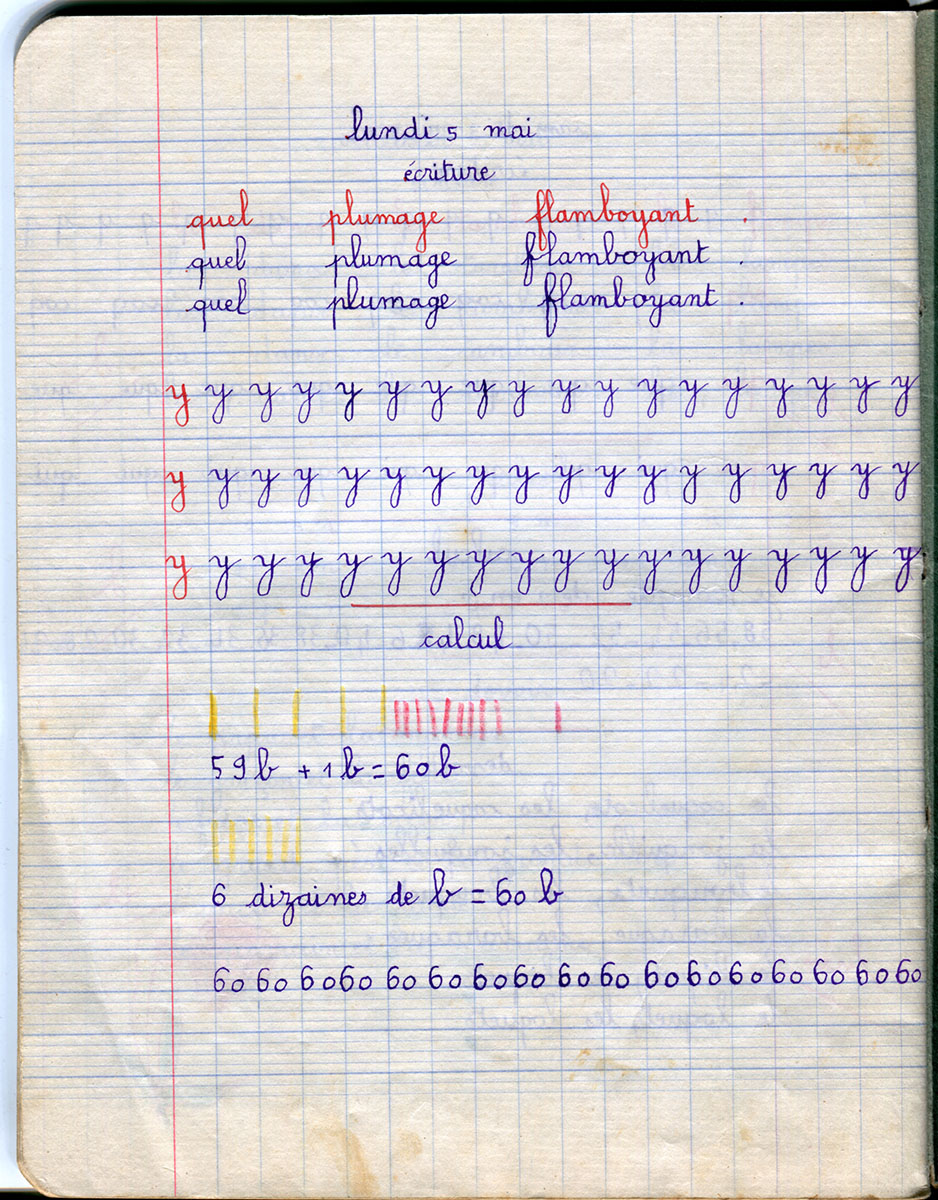 lundi 5 mai
écriture
quel plumage flamboyant .
quel plumage flamboyant .
quel plumage flamboyant .
y y y y y y y y y y y y y y y y y y
y y y y y y y y y y y y y y y y y y
y y y y y y y y y y y y y y y y y y
calcul
59 b + 1 b = 60 b
6 dizaines de b = 60 b
60 60 60 60 60 60 60 60 60 60 60 60 60 60 60 60 60